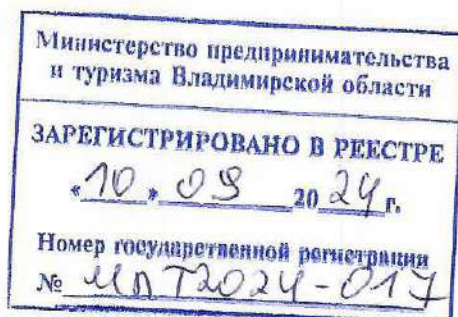 Министерство предпринимательства
и туризма Владимирской области
ЗАРЕГИСТРИРОВАНО В РЕЕСТРЕ
«10» 09 2024 г.
Номер государственной регистрации
№ МПТ2024-017